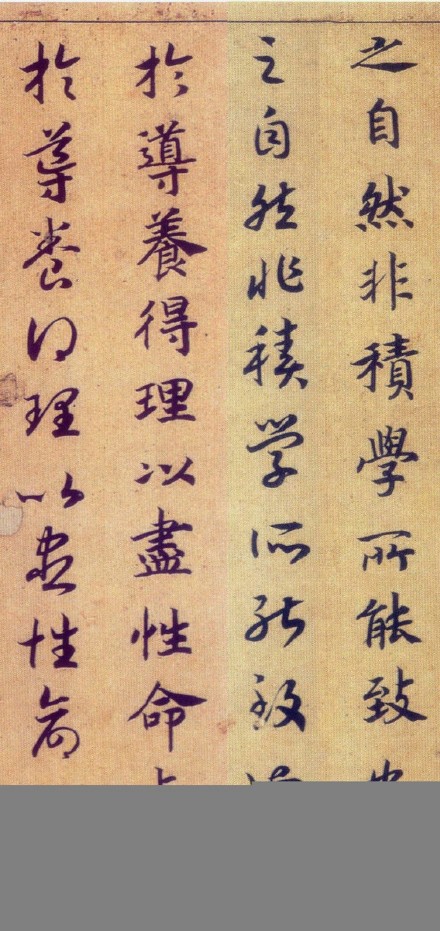 之自然非積學所能致
之自然非積學所能致
於導養得理以盡性命
於導養得理以盡性命